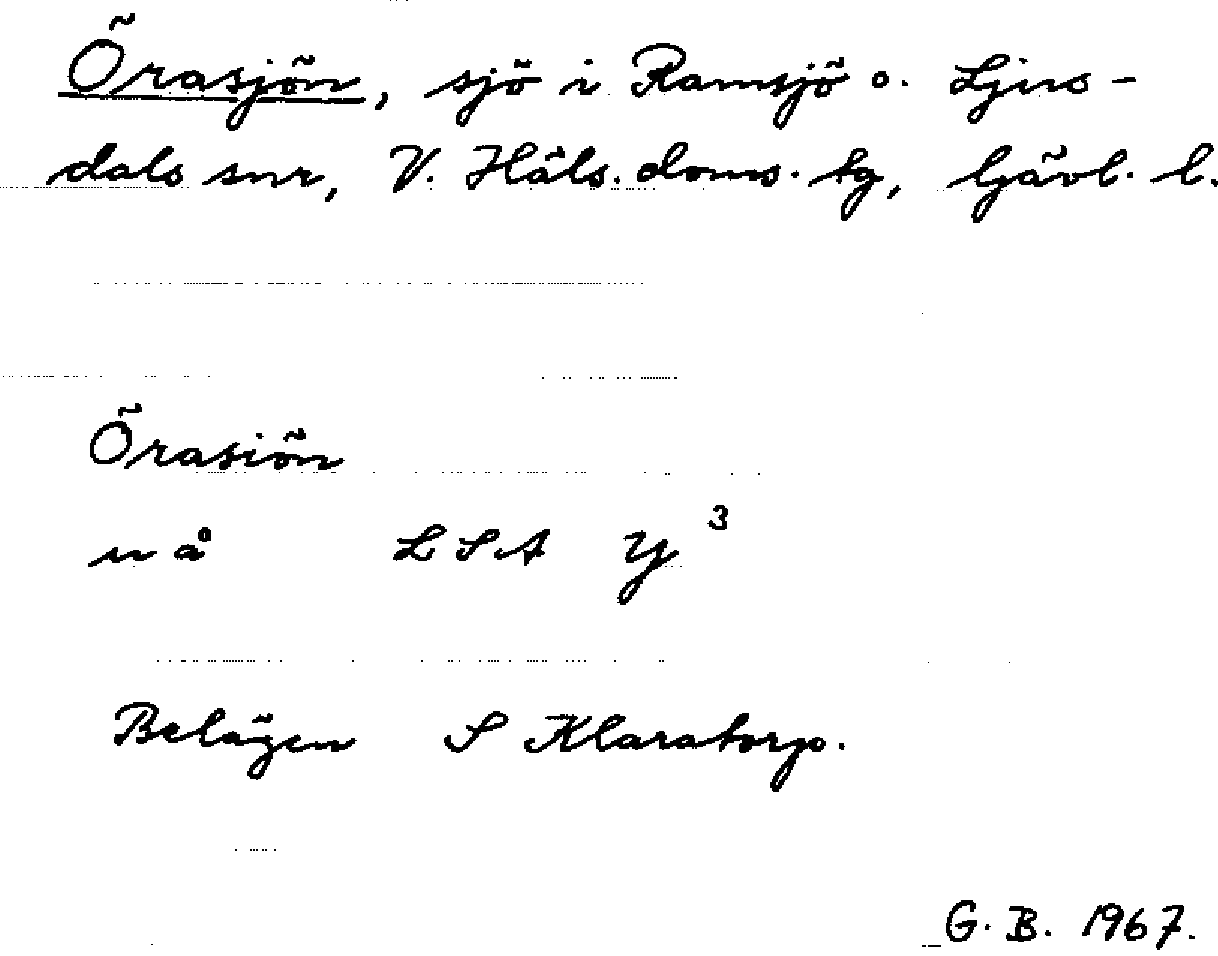 Örasjön, sjö i Ramsjö o. Ljus-
dals snr, V. Häls. doms. tg, Gävl. l.
Örasiön
nå LSA Y 3
Belägen S Klaratorp.
G. B. 1967.